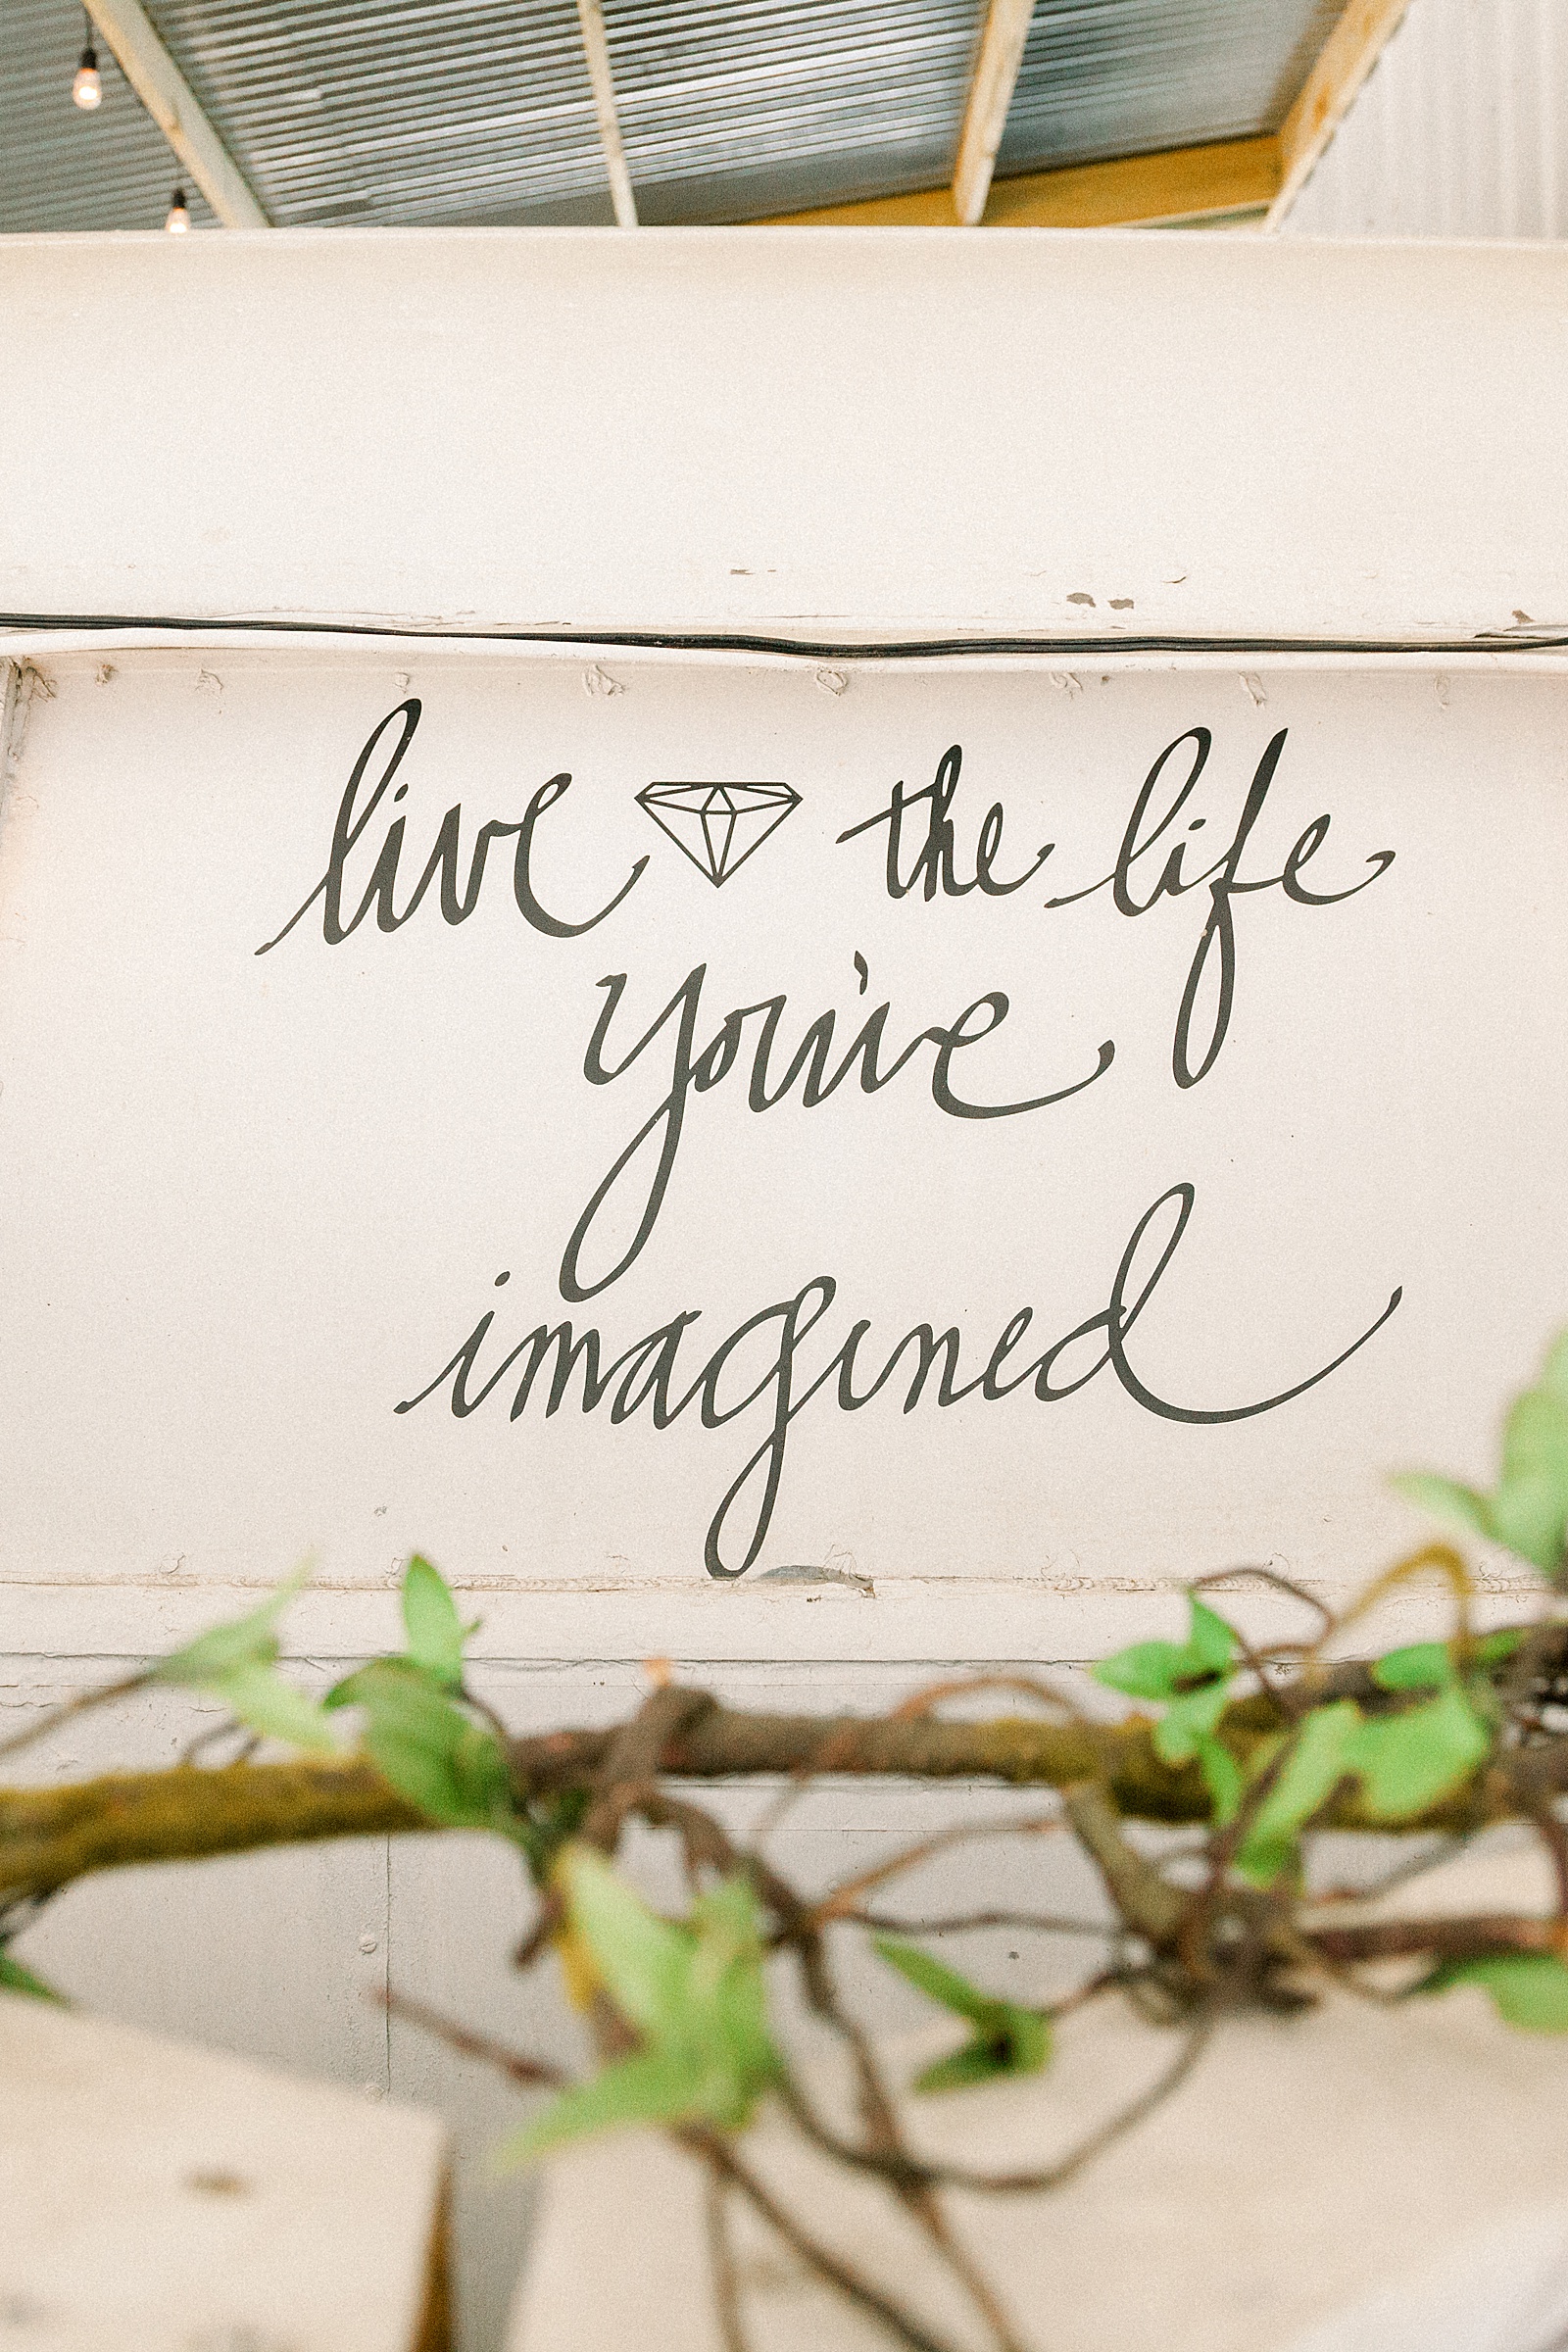 live the life
you've
imagined